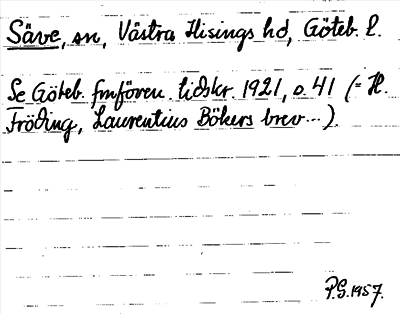 Säve, sn, Västra Hisings hd, Göteb. l.
Se Göteb. fmfören. tidskr. 1921, s. 41 (= H.
Fröding, Laurentius Bökers brev...).
P.G. 1957.